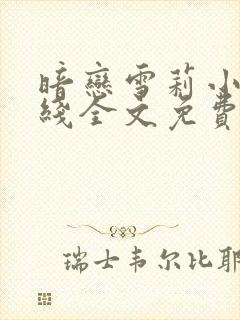 暗戀雪莉小
綫全文免費
瑞士韦尔比耶